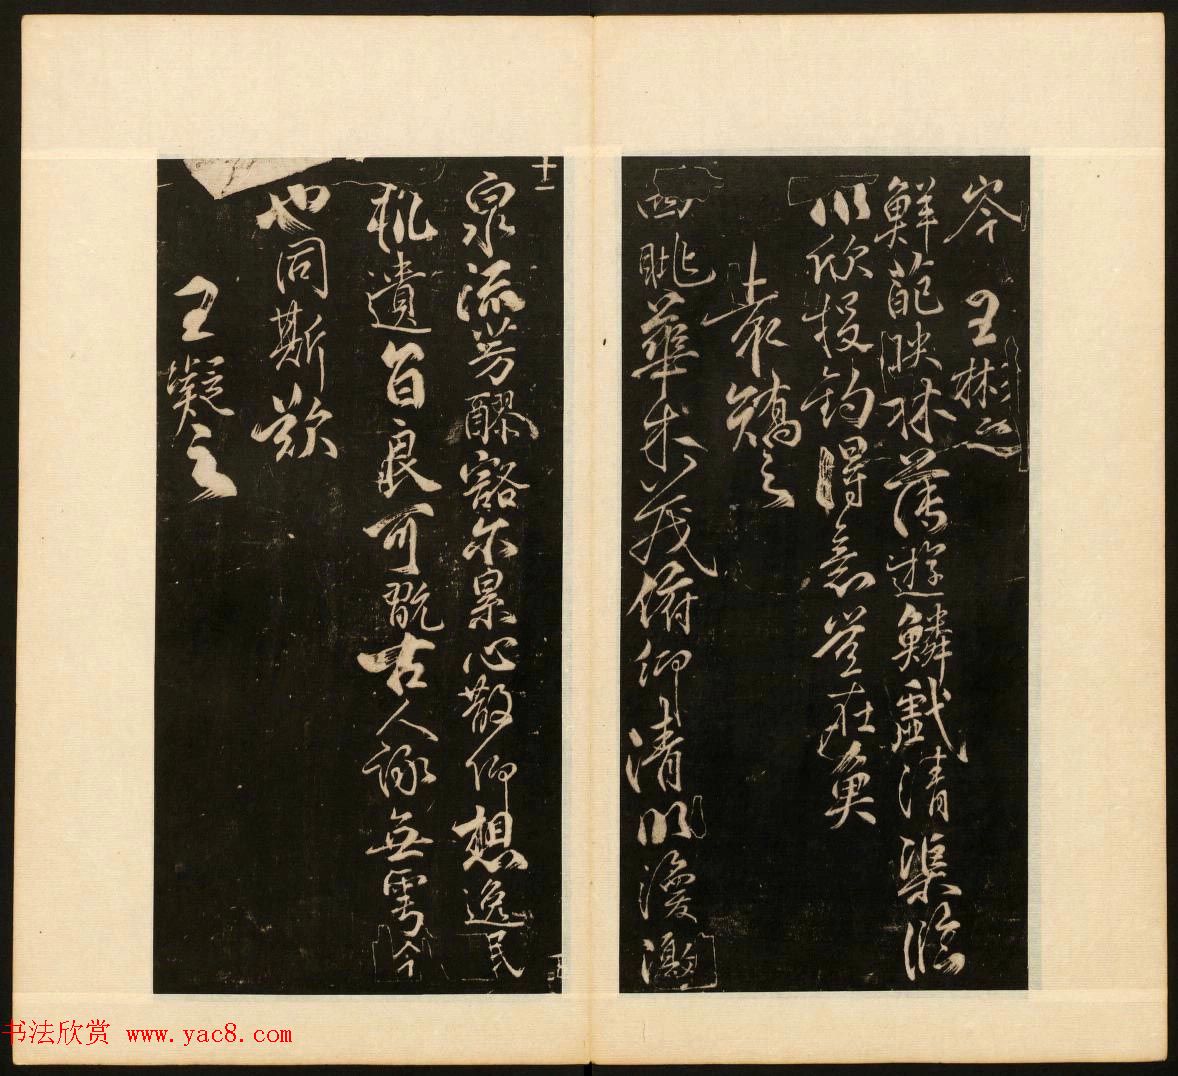 岑 王彬之
鮮葩映林薄遊鱗戲清渠臨
川欣投釣得意豈在魚
袁嶠之
四眺華林茂俯仰清川渙激
泉流芳醪豁尔累心散仰想逸民
軌遺音良可翫古人詠無雩今
也同斯歡
王凝之
书法欣赏 www.yac8.com